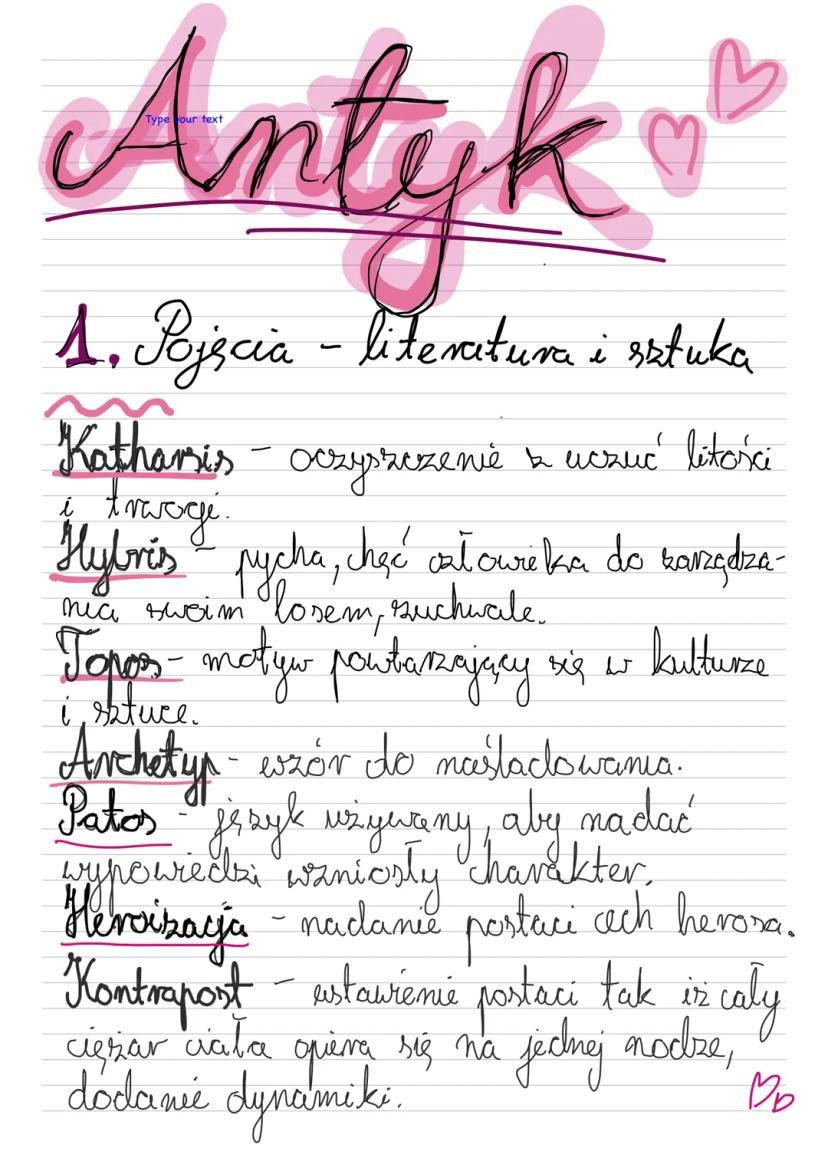 Antyk
Type your text
1. Pojęcia - literatura i sztuka
Katharsis - oczyszczenie z uczuć litości
i trwogi.
Hybris - pycha, chęć człowieka do zarządza-
nia swoim losem, zuchwale.
Topos - motyw powtarzający się w kulturze
i sztuce.
Archetyp - wzór do naśladowania.
Patos - język używany, aby nadać
wypowiedzi wzniosły charakter.
Heroizacja - nadanie postaci cech herosa.
Kontrapost - ustawienie postaci tak iż cały
ciężar ciała opiera się na jednej nodze,
dodanie dynamiki.